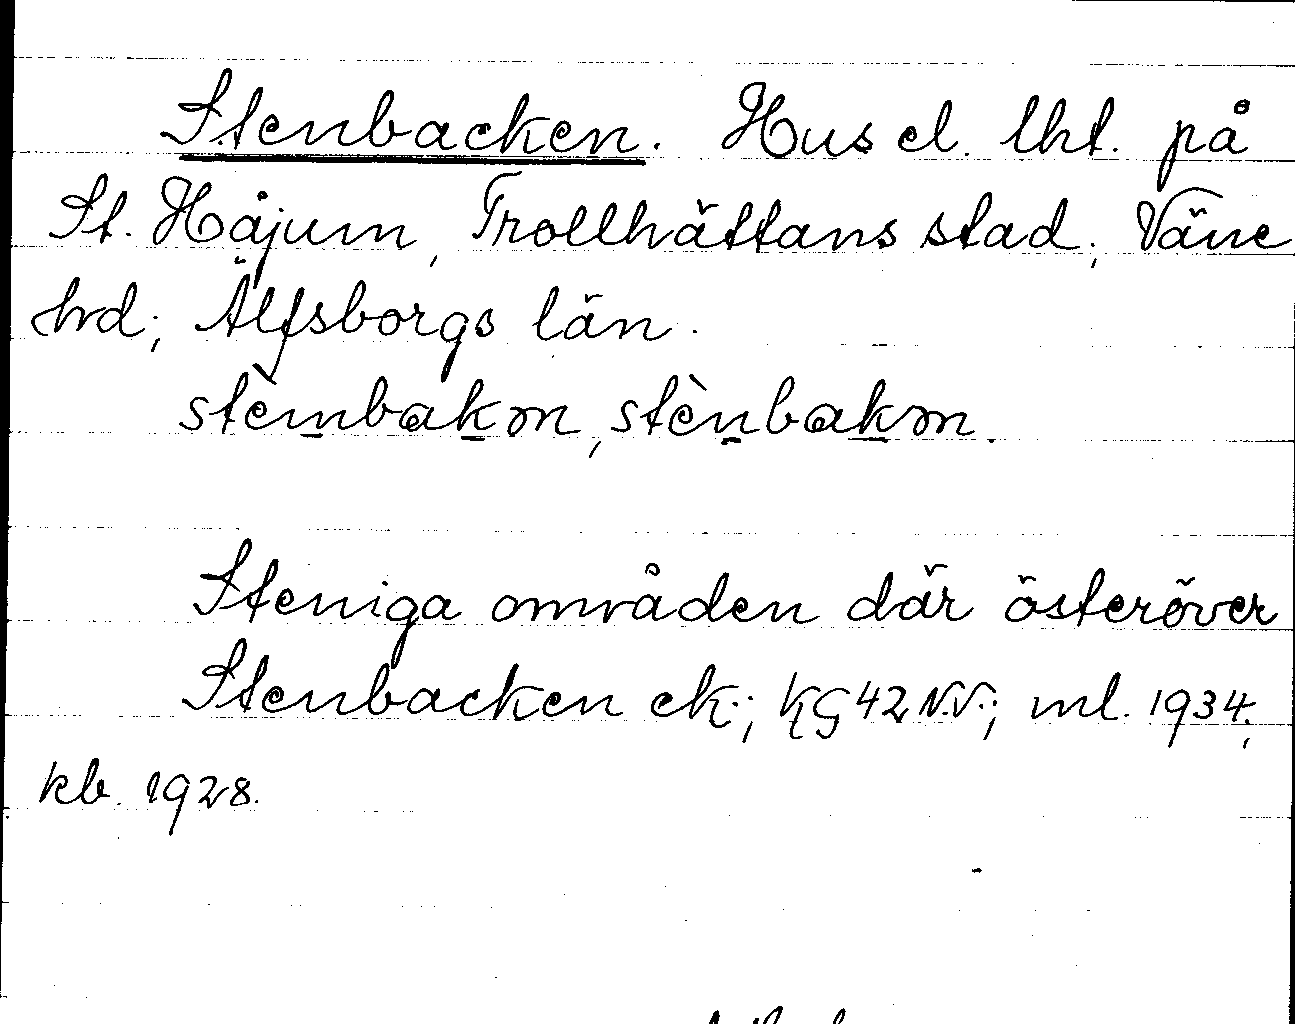 Stenbacken. Hus el. lht. på
St. Håjum, Trollhättans stad; Väne
hd; Älfsborgs län.
stèmbakm, stènbakm.
Steniga områden där österöver
Stenbacken ek.; KG 42 N.V.; ml. 1934;
kb. 1928.